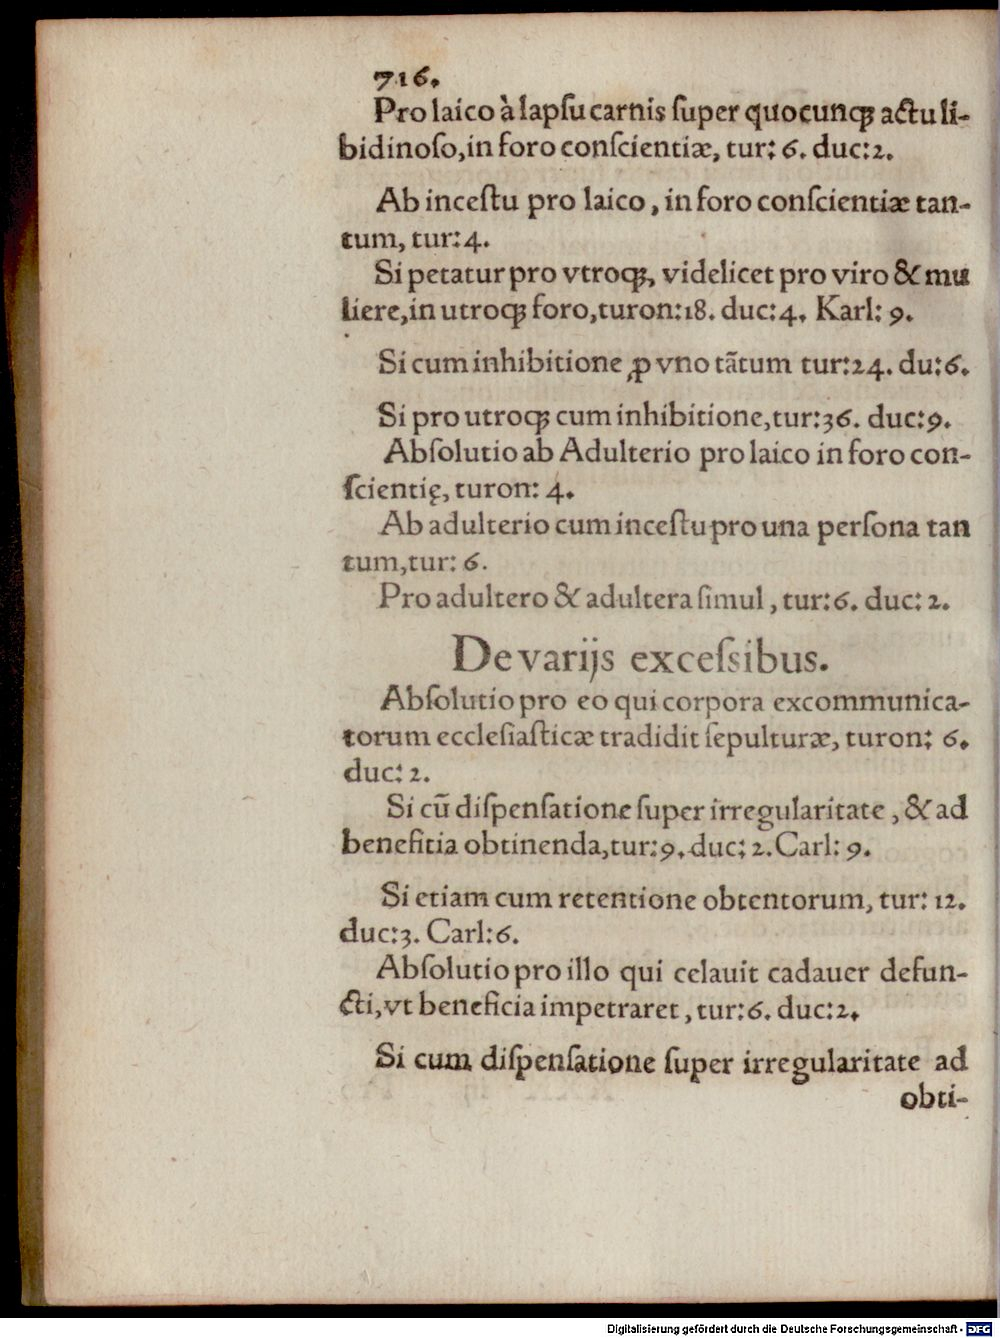 716.
Pro laico à lapſu carnis ſuper quocunqꝫ actu li-
bidinoſo, in foro conſcientiæ, tur: 6. duc: 2.
Ab inceſtu pro laico, in foro conſcientiæ tan-
tum, tur: 4.
Si petatur pro vtroqꝫ, videlicet pro viro & mu
liere, in utroqꝫ foro, turon: 18. duc: 4. Karl: 9.
Si cum inhibitione ꝓ vno tãtum tur: 24. du: 6.
Si pro utroqꝫ cum inhibitione, tur: 36. duc: 9.
Abſolutio ab Adulterio pro laico in foro con-
ſcientię, turon: 4.
Ab adulterio cum inceſtu pro una perſona tan
tum, tur: 6.
Pro adultero & adultera ſimul, tur: 6. duc: 2.
De varijs exceſsibus.
Abſolutio pro eo qui corpora excommunica-
torum eccleſiaſticæ tradidit ſepulturæ, turon: 6.
duc: 2.
Si cũ diſpenſatione ſuper irregularitate, & ad
benefitia obtinenda, tur: 9. duc: 2. Carl: 9.
Si etiam cum retentione obtentorum, tur: 12.
duc: 3. Carl: 6.
Abſolutio pro illo qui celauit cadauer defun-
cti, vt beneficia impetraret, tur: 6. duc: 2.
Si cum diſpenſatione ſuper irregularitate ad
obti-
Digitalisierung gefördert durch die Deutsche Forschungsgemeinschaft - DFG